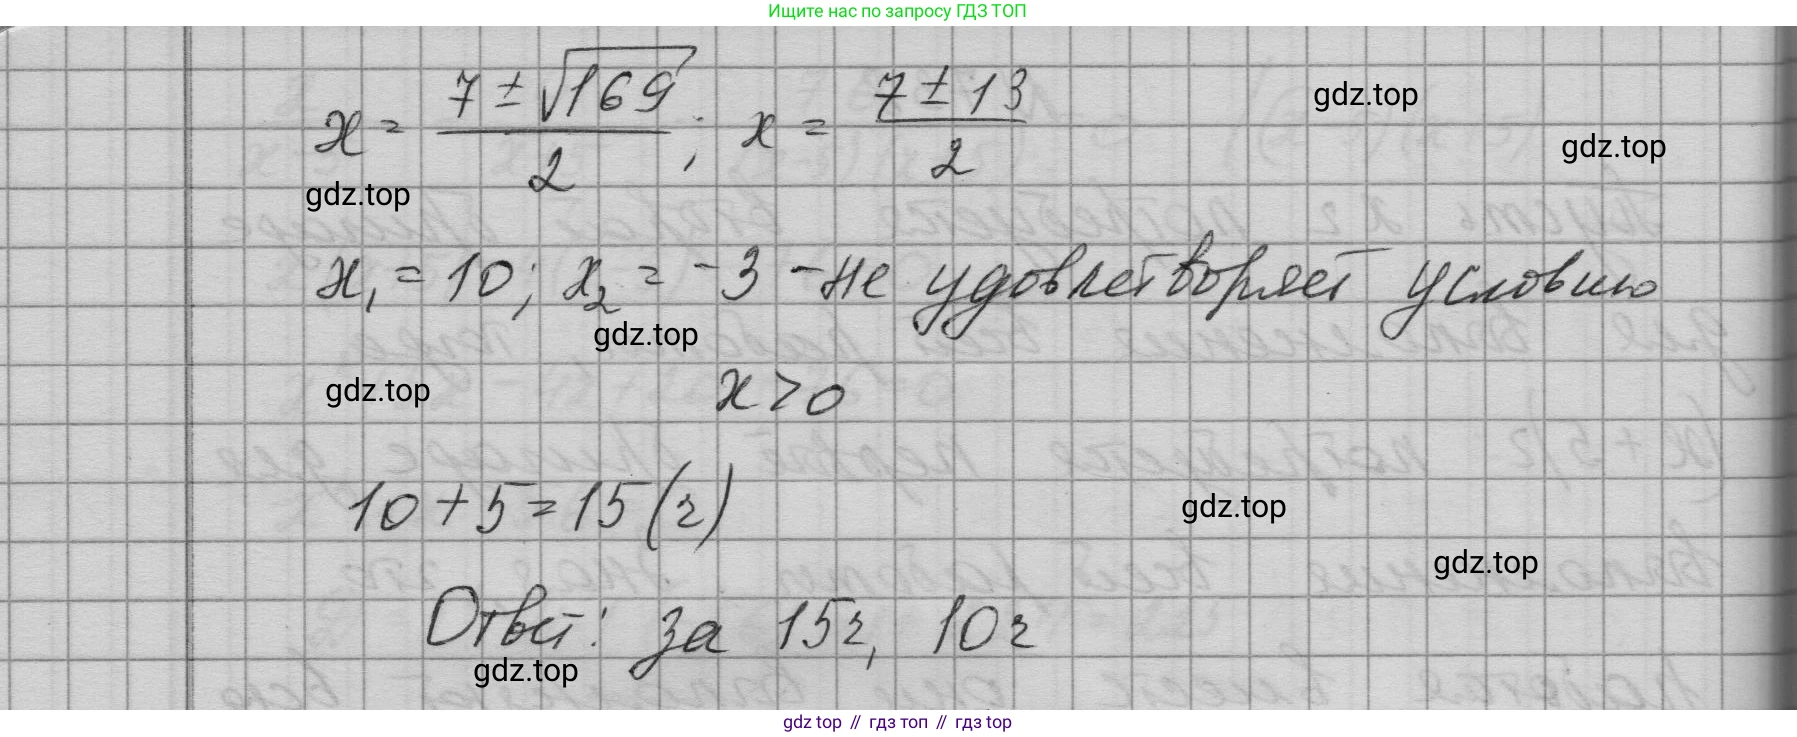 Ищите нас по запросу ГДЗ ТОП
x = (7 ± √169)/2 ; x = (7 ± 13)/2
gdz.top
gdz.top
gdz.top
x₁ = 10; x₂ = -3 - не удовлетворяет условию
gdz.top
x > 0
gdz.top
10 + 5 = 15 (ч)
gdz.top
gdz.top
Ответ: за 15ч, 10ч
gdz.top
gdz top // гдз топ // gdz top